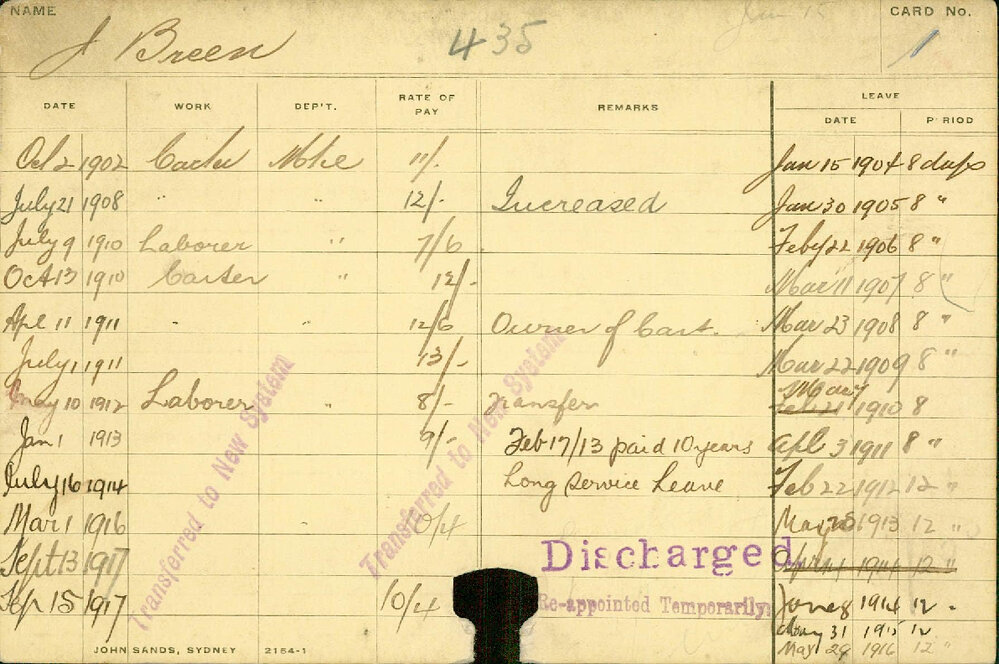 NAME CARD No.
J Breen 435 1
DATE WORK DEP'T. RATE OF PAY REMARKS LEAVE
DATE PERIOD
Oct 2 1902 Carter 11/. Jan 15 1904 8 days
July 21 1908 " " 12/- Increased Jan 30 1905 8 "
July 9 1910 Laborer " 7/6 Feby 22 1906 8 "
Oct 13 1910 Carter " 12/- Mar 11 1907 8 "
Apl 11 1911 " " 12/6 Owner of Cart. Mar 23 1908 8 "
July 1 1911 13/- Mar 22 1909 8 "
May 10 1912 Laborer " 8/- Transfer Feb 21 1910 8
Jan 1 1913 9/- Feb 17/13 paid 10 years Apl 3 1911 8 "
July 16 1914 Long Service Leave Feb 22 1912 12 "
Mar 1 1916 10/4 May 1913 12 "
Sept 13 1917 Discharged 1914 12 "
Sep 15 1917 10/4 Re-appointed Temporarily June 8 1914 12 "
May 31 1915 12
May 29 1916 12 "
Transferred to New System
Transferred to New System
JOHN SANDS, SYDNEY 2154-1